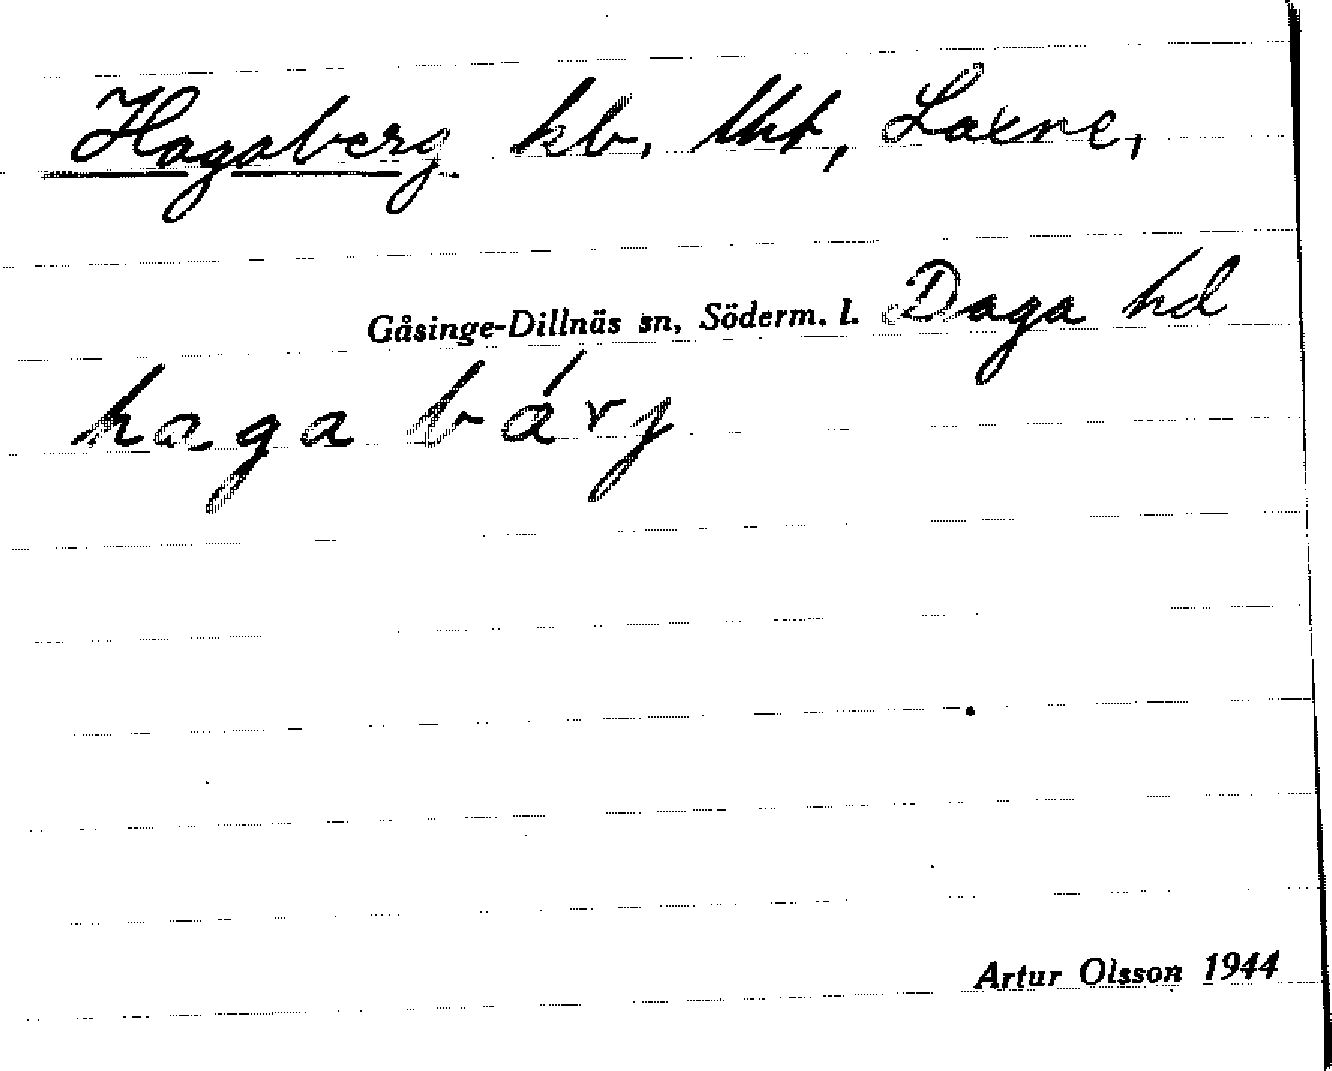 Hagaberg kb, lht, Laxne,
Gåsinge-Dillnäs sn, Söderm. l. Daga hd
haga bárj
Artur Olsson 1944